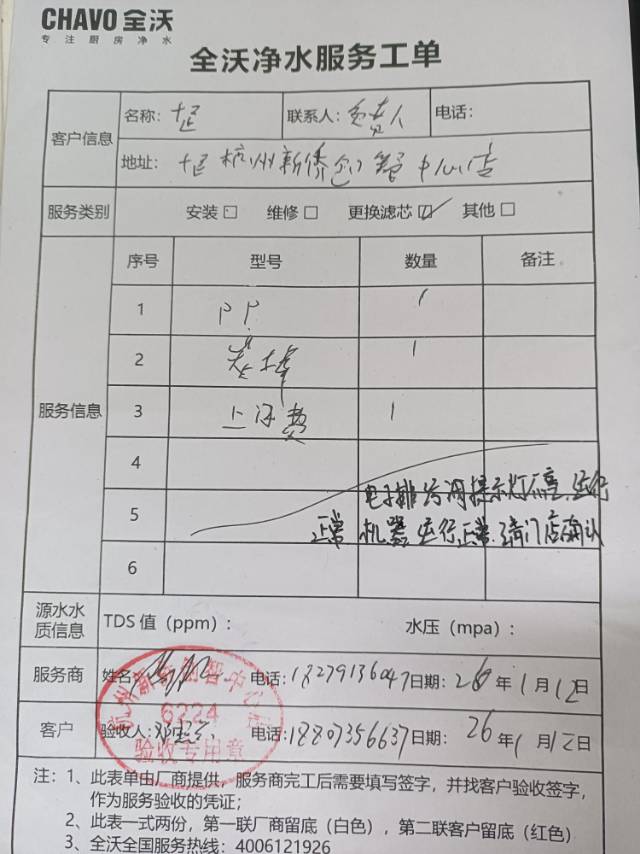 CHAVO 全沃
专注厨房净水
全沃净水服务工单
客户信息
名称: 联系人: 负责人 电话:
地址: 杭州新侨创智中心店
服务类别 安装□ 维修□ 更换滤芯☑ 其他□
服务信息
序号 型号 数量 备注
1 PP 1
2 1
3 上门费 1
4
5
6
电子排污阀提示灯 运行
正常 机器运行正常 请门店确认
源水水质信息 TDS 值（ppm）: 水压（mpa）:
服务商 姓名: 电话: 18279136047 日期: 26 年 1 月 12 日
客户 验收人: 电话: 18807356637 日期: 26 年 1 月 12 日
6224
验收专用章
注: 1、此表单由厂商提供，服务商完工后需要填写签字，并找客户验收签字，
作为服务验收的凭证;
2、此表一式两份，第一联厂商留底（白色），第二联客户留底（红色）
3、全沃全国服务热线: 4006121926